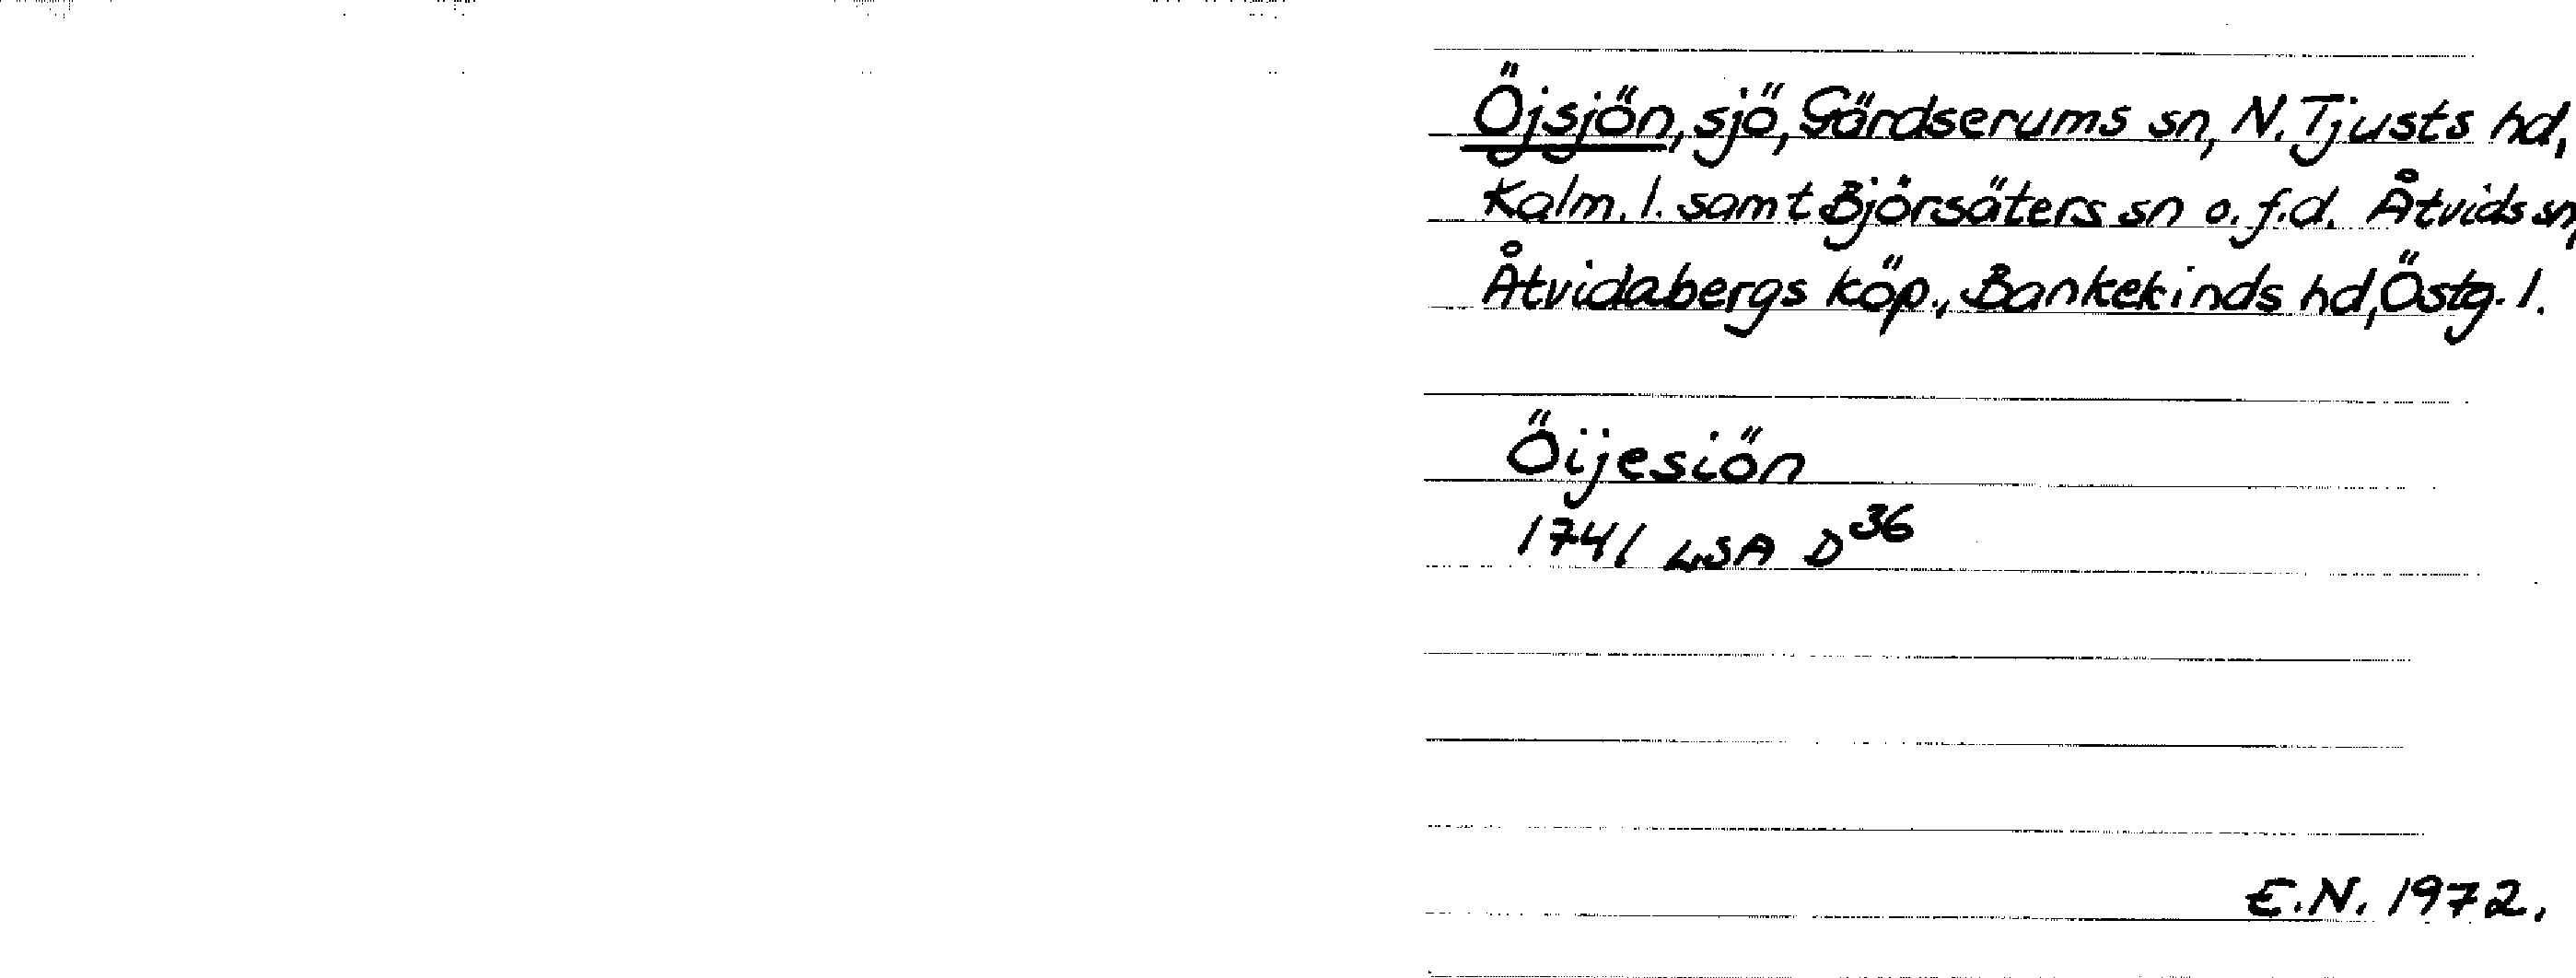 Öjsjön, sjö, Gärdserums sn, N. Tjusts hd,
Kalm. l. samt Björsäters sn o. f.d. Åtvids sn,
Åtvidabergs köp., Bankekinds hd, Östg. l.
Öijesiön
1741 LSA D36
E.N. 1972.